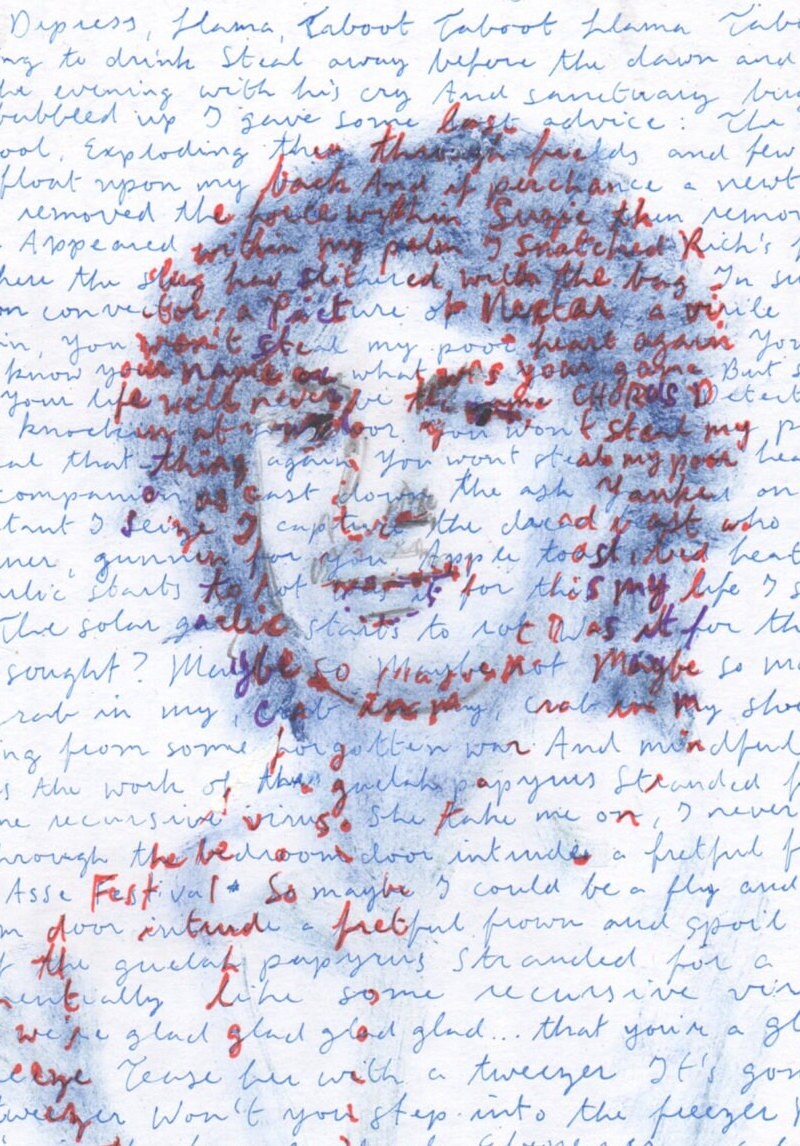 Depress, Llama, Taboot Taboot Llama Tabo
ng to drink Steal away before the dawn and
he evening with his cry And sanctuary bu
bubbled up I gave some last advice: The
ool, Exploding then through fields and few
float upon my back And if perchance a newt
removed the voice within Suzie then remov
Appeared within my palm I snatched Rich's
here the slug had slithered, with the bag In su
on convector, a Picture of Nectar a virile
in, You won't steal my poor heart again You
know your name or what was your game But s
Your life will never be the same CHORDS Detect
knockin at your door You won't steal my p
al that thing again You wont steal my poor hea
companion as cast down the ash Yanked on
tant I seize I capture the dread beast who
ner, gunnin for you Apple toast, bed heat
rlic starts to rot Was it for this my life I s
The solar garlic starts to rot Was it for th
sought? Maybe so Maybe not Maybe so ma
rab in my, Crab in my, Crab in my sho
ng from some forgotten war And mindful
s the work of the guelah papyrus Stranded f
me recursive virus. She take me on, I never
hrough the bedroom door intrude a fretful f
Asse Festival * So maybe I could be a fly and
m door intrude a fretful frown and spoil
f the guelah papyrus Stranded for a
entially like some recursive viru
we're glad glad glad glad... that you're a gl
eeze Tease her with a tweezer It's gon
tweezer Won't you step into the freezer